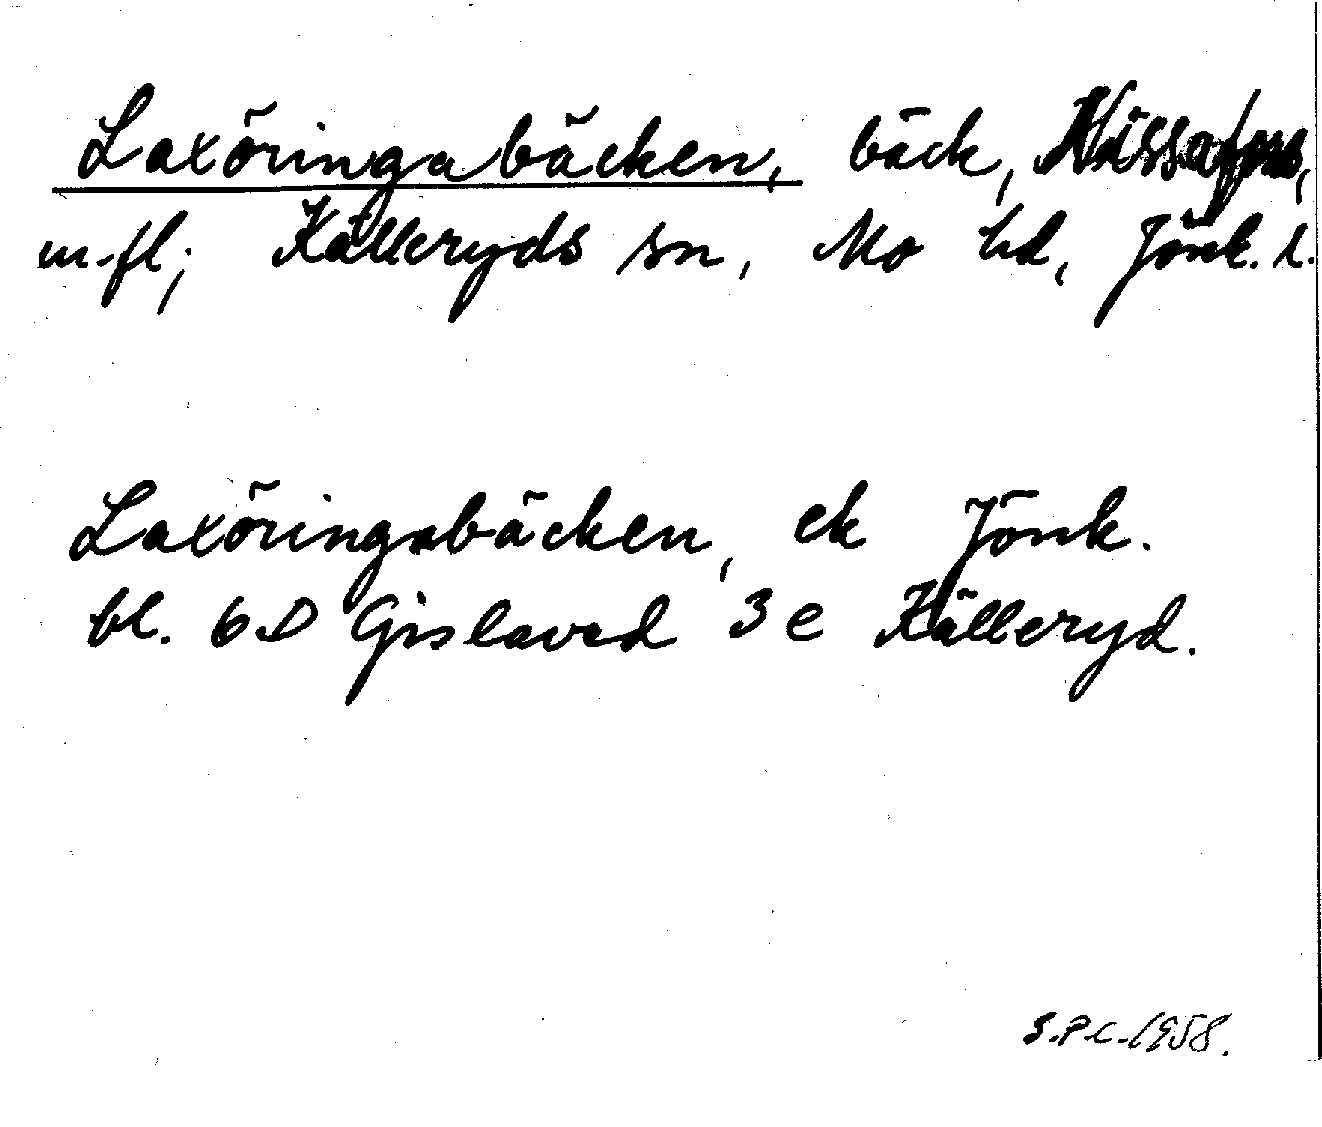 Laxöringabäcken, bäck,
m-fl; Källeryds sn, Mo hd, Jönk. l.
Laxöringabäcken, ek Jönk.
bl. 6D Gislaved 3e Källeryd.
S.P.C.-1958.